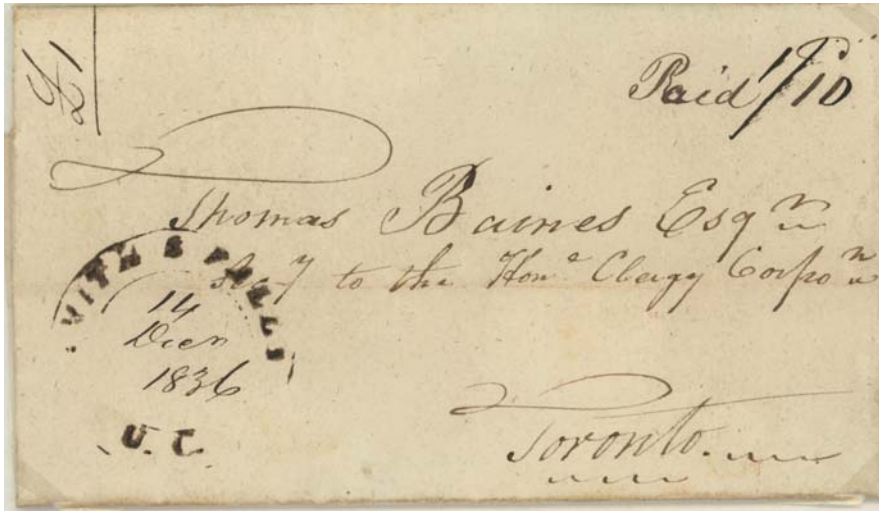 £1
Paid 1/10
Thomas Baines Esqr
Secy to the Hone Clergy Corpon
SMITH'S FALLS
14
Decr
1836
U.C.
Toronto.